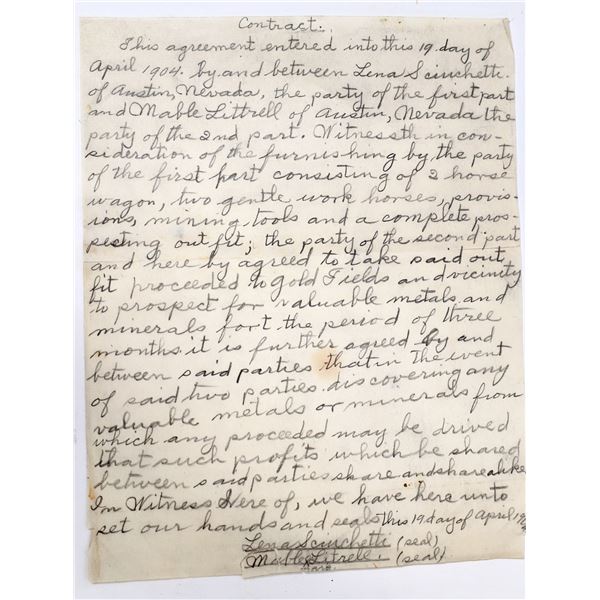 Contract.
This agreement entered into this 19. day of
April 1904. by and between Lena Sciuchetti.
of Austin, Nevada, the party of the first part
and Mable Littrell of Austin, Nevada the
party of the 2nd part. Witnessth in con-
sideration of the furnishing by the party
of the first part consisting of 2 horse
wagon, two gentle work horses, provis-
ions, mining tools and a complete pros-
pesting out fit; the party of the second part
and here by agreed to take said out
fit proceeded to Gold Fields and vicinity
to prospect for valuable metals and
minerals fort the period of three
months. it is further agreed by and
between said parties that in the event
of said two parties. discovering any
valuable metals or minerals from
which any proceeded may be drived
that such profits which be shared
between said parties share and share alike
In Witness Where of, we have here unto
set our hands and seals this 19. day of April 1904
Lena Sciuchetti (seal)
Mable Litrell. (seal)